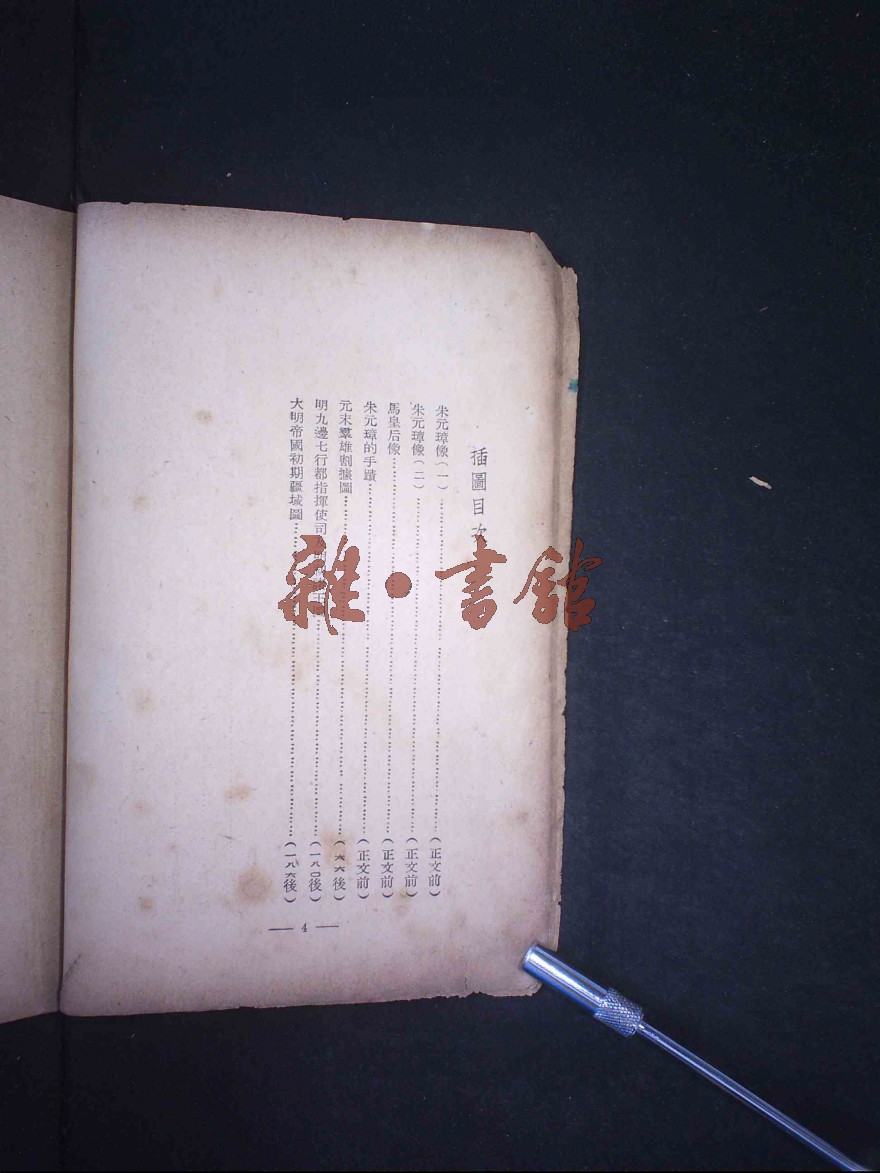 插圖目次
朱元璋像（一）……（正文前）
朱元璋像（二）……（正文前）
馬皇后像……（正文前）
朱元璋的手蹟……（正文前）
元末羣雄割據圖……（六六後）
明九邊七行都指揮使司……（一八〇後）
大明帝國初期疆域圖……（一八六後）
— 4 —
雜·書館